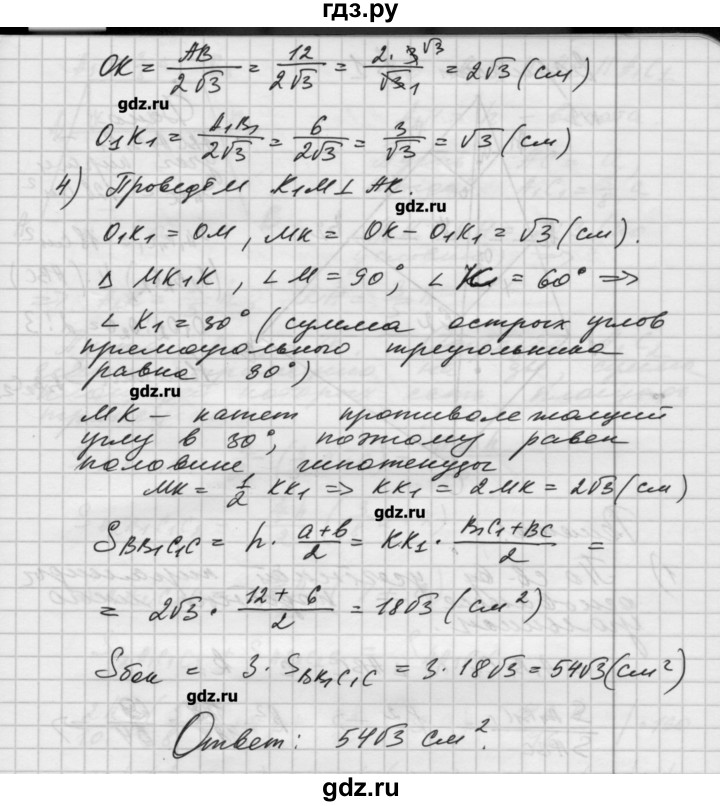 гдз.ру
OK = AB/2√3 = 12/2√3 = 2·3√3/√3 1 = 2√3 (см)
gdz.ru
O₁K₁ = A₁B₁/2√3 = 6/2√3 = 3/√3 = √3 (см)
4) Проведём K₁M ⊥ AK.
gdz.ru
O₁K₁ = OM, MK = OK − O₁K₁ = √3 (см).
△ MK₁K, ∠M = 90°, ∠K = 60° =>
∠K₁ = 30° (сумма острых углов
прямоугольного треугольника
равна 90°)
gdz.ru
MK — катет противолежащий
углу в 30°, поэтому равен
половине гипотенузы
MK = 1/2 KK₁ => KK₁ = 2MK = 2√3 (см)
gdz.ru
S BB₁C₁C = h · (a+b)/2 = KK₁ · (B₁C₁+BC)/2 =
= 2√3 · (12+6)/2 = 18√3 (см²)
Sбок = 3·S BB₁C₁C = 3·18√3 = 54√3 (см²)
gdz.ru
Ответ: 54√3 см².
gdz.ru